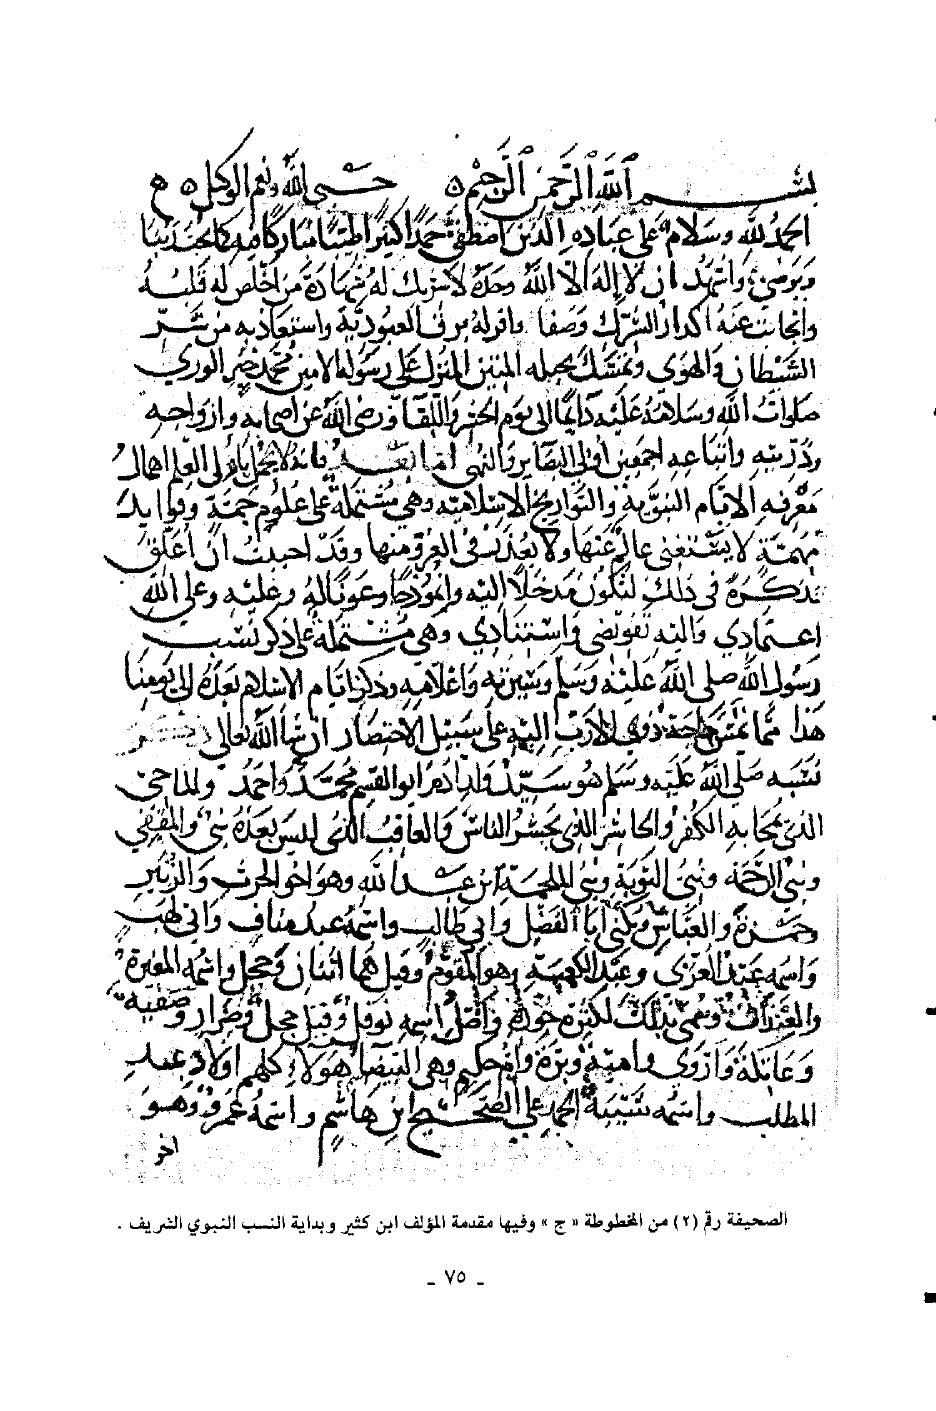 بسم الله الرحمن الرحيم ه حسبي الله ونعم الوكيل ه ه
الحمد لله وسلام على عباده الذين اصطفى حمدا كثيرا طيبا مباركا فيه كما يحب ربنا
ويرضى واشهد ان لا إله الا الله وحده لا شريك له شهادة من اخلص له قلبه
وانجابت عنه اكدار الشرك وصفا واقر له برق العبودية واستعاذ به من شر
الشيطان والهوى وتمسك بحبله المتين المنزل على رسوله الامين محمد خير الورى
صلوات الله وسلامه عليه دائما الى يوم الحشر واللقا ورضي الله عن اصحابه وازواجه
وذريته واتباعه اجمعين اولى البصاير والنهى اما بعد فانه لا يجمل باولى العلم اهمال
معرفه الايام النبوية والتواريخ الاسلاميه وهي مشتملة على علوم جمة وفوايد
مهمة لا يستغنى عالم عنها ولا يعذر في العرو منها وقد احببت ان اعلق
تذكرة في ذلك لتكون مدخلا اليه وانموذجا وعونا له وعليه وعلى الله
اعتمادي واليه تفويضي واستنادي وهي مشتملة على ذكر نسب
رسول الله صلى الله عليه وسلم وسيرته واعلامه وذكر ايام الاسلام بعده الى يومنا
هذا مما تمس حاجة ذوي الارب اليه على سبيل الاختصار ان شا الله تعالى
نسبه صلى الله عليه وسلم هو سيد ولد ادم ابو القسم محمد واحمد والماحي
الذي يمحا به الكفر والحاشر الذي يحشر الناس والعاقب الذي ليس بعده نبي والمقفي
ونبي الرحمة ونبي التوبة ونبي الملحمة ابن عبد الله وهو اخو الحرث والزبير
وحمزة والعباس ويكنى ابا الفضل وابي طالب واسمه عبد مناف وابي لهب
واسمه عبد العزى وعبد الكعبة وهو المقوم وقيل هما اثنان وحجل واسمه المغيرة
والغيداق وسمي بذلك لكثرة جوده واصل اسمه نوفل وقيل حجل وضرار وصفيه
وعاتكة واروى واميمة وبرة وام حكيم وهي البيضا هولاء كلهم اولاد عبد
المطلب واسمه شيبة الحمد على الصحيح ابن هاشم واسمه عمرو وهو
اخو
الصحيفة رقم (٢) من المخطوطة « ج » وفيها مقدمة المؤلف ابن كثير وبداية النسب النبوي الشريف .
ـ ٧٥ ـ